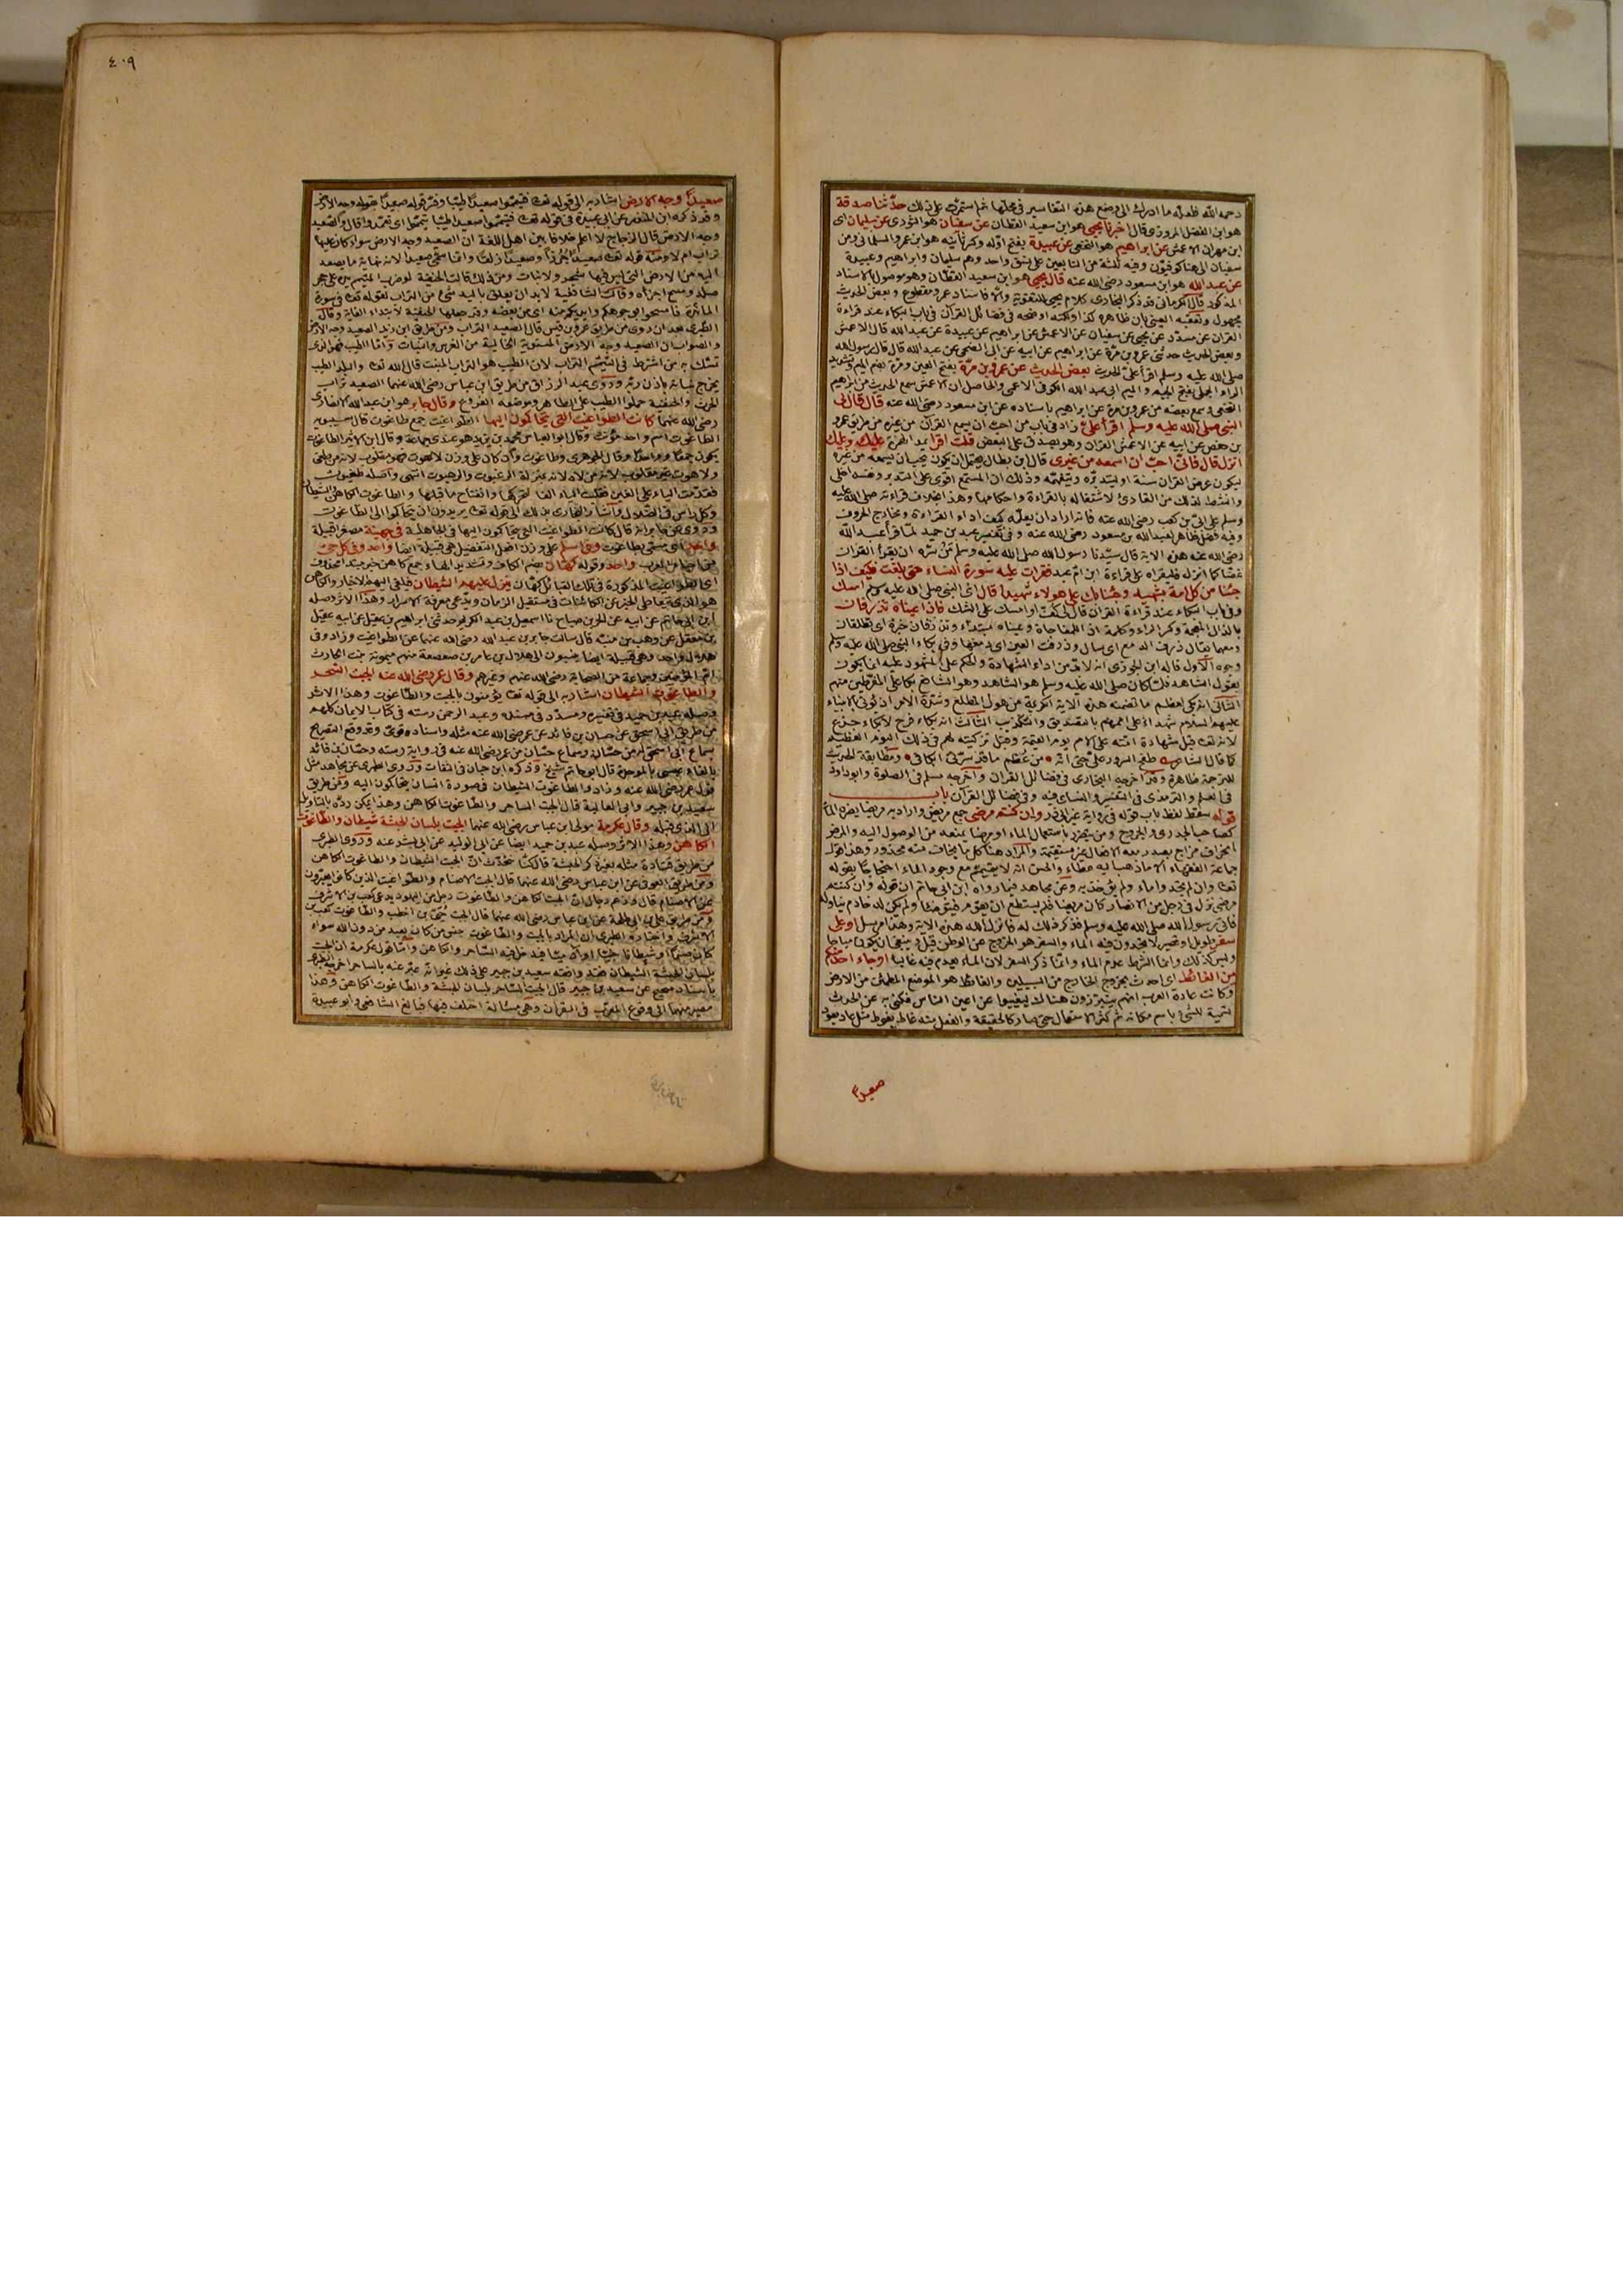 رحمه الله ما ادراك الى وضع هذه التفاسير في محلها ثم استمرت على ذلك حدثنا صدقة
هو ابن الفضل المروزي قال اخبرنا يحيى هو ابن سعيد القطان عن سفيان هو الثوري عن سليمان اى
ابن مهران الاعمش عن ابراهيم هو النخعي عن عبيدة بفتح اوله وكسر ثانيه هو ابن عمرو السلماني ومن
سفيان الى هنا كوفيون وفيه ثلثة من التابعين على نسق واحد وهم سليمان وابراهيم وعبيدة
عن عبد الله هو ابن مسعود رضى الله عنه قال يحيى هو ابن سعيد القطان وهو موصول بالاسناد
المذكور قال الكرماني قد ذكر البخارى كلام يحيى للتقوية والا فاسناد عمرو مقطوع وبعض الحديث
مجهول وتعقبه العيني بان ظاهره كذا ولكنه اوضحه في فضائل القرآن في باب البكاء عند قراءة
القران عن مسدد عن يحيى عن سفيان عن الاعمش عن ابراهيم عن عبيدة عن عبد الله قال الاعمش
وبعض الحديث حدثنى عمرو بن مرة عن ابراهيم عن ابيه عن ابى الضحى عن عبد الله قال قال رسول الله
صلى الله عليه وسلم اقرأ على الحديث بعض الحديث عن عمرو بن مرة بفتح العين ومرة بضم الميم وتشديد
الراء الجملي بفتح الجيم والميم ابى عبد الله الكوفى الاعمى والحاصل ان الاعمش سمع الحديث من ابراهيم
النخعى وسمع بعضه من عمرو بن مرة عن ابراهيم باسناده عن ابن مسعود رضى الله عنه قال قال لى
النبي صلى الله عليه وسلم اقرأ علىّ زاد في باب من احب ان يسمع القرآن من غيره من طريق عمر
بن حفص عن ابيه عن الاعمش القران وهو يصدق على البعض قلت اقرا بمد الهمزة عليك وعليك
انزل قال فانى احب ان اسمعه من غيرى قال ابن بطال يحتمل ان يكون يحب ان يسمعه من غيره
ليكون عرض القران سنة او ليتدبره ويتفهمه وذلك ان المستمع اقوى على التدبر ونفسه اخلى
وانشط لذلك من القارئ لاشتغاله بالقراءة واحكامها وهذا بخلاف قراءته صلى الله عليه
وسلم على ابىّ بن كعب رضى الله عنه فانه اراد ان يعلمه كيف اداء القراءة ومخارج الحروف
وفيه فضل ظاهر لعبد الله بن مسعود رضى الله عنه وفى تفسير عبد بن حميد لما قرأ عبد الله
رضى الله عنه هذه الاية قال سيدنا رسول الله صلى الله عليه وسلم من سره ان يقرأ القران
غضا كما انزل فليقراه على قراءة ابن ام عبد فقرات عليه سورة النساء حتى بلغت فكيف اذا
جئنا من كل امة بشهيد وجئنا بك على هؤلاء شهيدا قال اى النبي صلى الله عليه وسلم امسك
وفى باب البكاء عند قراءة القران قال لى كف او امسك على الشك فاذا عيناه تذرفان
بالذال المعجمة وكسر الراء وكلمة اذا للمفاجاة وعيناه مبتداء وتذرفان خبره اى تطلقان
دمعهما يقال ذرف الدمع اى سال وذرفت العين اى دمعها وفى بكاء النبي صلى الله عليه وسلم
وجوه الاول قاله ابن الجوزى انه لابد من اداء الشهادة والحكم على المشهود عليه انما يكون
بقول الشاهد فلما كان صلى الله عليه وسلم هو الشاهد وهو الشافع بكا على المفرطين منهم
الثانى انه بكى لعظم ما تضمنته هذه الاية الكريمة من هول المطلع وشدة الامر اذ يؤتى بالانبياء
عليهم السلام شهداء على اممهم بالتصديق والتكذيب الثالث انه بكاء فرح لا بكاء جزع
لانه تعالى قبل شهادة امته على الامم يوم القيمة وقبل تزكيته لهم في ذلك اليوم العظيم
كما قال الشاعر طفح السرور علىّ حتى انه من عظم ما قد سرنى ابكانى ومطابقة الحديث
للترجمة ظاهرة وقد اخرجه البخارى في فضائل القران واخرجه مسلم في الصلوة وابو داود
في العلم والترمذى في التفسير والنساى فيه وفي فضائل القرآن باب
قوله سقط لفظ باب قوله في رواية غير ابى ذر وان كنتم مرضى جمع مريض واراد به مريضا يضره الماء
كصاحب الجدرى والجروح ومن يتضرر باستعمال الماء او مرضا يمنعه من الوصول اليه والمرض
انحراف مزاج يصدر معه الافعال غير مستقيمة والمراد هنا كل ما يخاف منه محذور وهذا قول
جماعة الفقهاء الا ما ذهب اليه عطاء والحسن انه لا يتيمم مع وجود الماء احتجاجا بقوله
تعالى وان لم تجدوا ماء ولم يؤخذ به وعن مجاهد فيما رواه ابن ابى حاتم ان قوله وان كنتم
مرضى نزل في رجل من الانصار كان مريضا فلم يستطع ان يقوم فيتوضأ ولم يكن له خادم يناوله
فاتى رسول الله صلى الله عليه وسلم فذكر ذلك له فانزل الله هذه الاية وهذا مرسل او على
سفر طويل او قصير لا تجدون فيه الماء والسفر هو الخروج عن الوطن قيل وينبغى ان يكون مباحا
وليس كذلك وانما الشرط عدم الماء وانما ذكر السفر لان الماء يعدم فيه غالبا او جاء احد منكم
من الغائط اى احدث بخروج الخارج من السبيلين والغائط هو الموضع المطمئن من الارض
وكانت عادة العرب انهم يتبرزون هناك ليغيبوا عن اعين الناس فكنى به عن الحدث
تسمية للشئ باسم مكانه ثم كثر الاستعمال حتى صار كالحقيقة والفعل منه غاط يغوط مثل عاد يعود
صعيدا
٤٠٩
صعيدا وجه الارض اشار به الى قوله تعالى فتيمموا صعيدا طيبا وفسر قوله صعيدا بقوله وجه الارض
وقد ذكره ابن المنذر عن ابى عبيدة في قوله تعالى فتيمموا صعيدا طيبا تيمموا اى تعمدوا قال والصعيد
وجه الارض قال الزجاج لا اعلم خلافا بين اهل اللغة ان الصعيد وجه الارض سواء كان عليها
تراب ام لا ومنه قوله تعالى صعيدا جرزا وصعيدا زلقا وانما سمى صعيدا لانه نهاية ما يصعد
اليه من الارض التى ليس فيها شجر ولا نبات ومن ذلك قالت الحنفية لو ضرب المتيمم يده على حجر
صلد ومسح اجزأه وقالت الشافعية لابد ان يعلق باليد شئ من التراب لقوله تعالى في سورة
المائدة فامسحوا بوجوهكم وايديكم منه اى من بعضه وقد جعلها الحنفية لابتداء الغاية وقال
الطبرى بعد ان روى من طريق عمرو بن قيس قال الصعيد التراب ومن طريق ابن زيد الصعيد وجه الارض
والصواب ان الصعيد وجه الارض المستوية الخالية من الغرس والنبات واما الطيب فهو الذى
تمسك به من اشترط في التيمم التراب لان الطيب هو التراب المنبت قال الله تعالى والبلد الطيب
يخرج نباته باذن ربه وروى عبد الرزاق من طريق ابن عباس رضى الله عنهما الصعيد تراب
الحرث والحنفية حملوا الطيب على الطاهر وموضعه الفروع وقال جابر هو ابن عبد الله الانصارى
رضى الله عنهما كانت الطواغيت التى يتحاكمون اليها الطواغيت جمع طاغوت قال سيبويه
الطاغوت اسم واحد مؤنث وقال ابو العباس محمد بن يزيد هو عندى جماعة وقال ابن الاثير الطاغوت
يكون جمعا وواحدا وقال الجوهرى وطاغوت وان كان على وزن لاهوت فهو مقلوب لانه من طغى
ولاهوت غير مقلوب لانه من لاه لانه بمنزلة الرغبوت والرهبوت انتهى واصله طغيوت
فقدمت الياء على الغين فقلبت الياء الفا لتحركها وانفتاح ما قبلها والطاغوت الكاهن والشيطان
وكل راس في الضلال واشار البخارى بذلك الى قوله تعالى يريدون ان يتحاكموا الى الطاغوت
وروى عن جابر انه قال كانت الطواغيت التى يتحاكمون اليها في الجاهلية في جهينة مصغرا قبيلة
واحد اى يسمى بطاغوت وفى اسلم على وزن افعل التفضيل هى قبيلة ايضا واحد وفى كل حى
من احياء العرب واحد وقوله كهان بضم الكاف وتشديد الهاء جمع كاهن خبر مبتدا محذوف
اى الطواغيت المذكورة في تلك القبائل كهان ينزل عليهم الشيطان فيلقى اليهم الاخبار والكاهن
هو الذى يتعاطى الخبر عن الكائنات في مستقبل الزمان ويدعى معرفة الاسرار وهذا الاثر وصله
ابن ابى حاتم عن ابيه عن الحسن بن صباح ثنا اسمعيل بن عبد الكريم حدثنى ابراهيم بن عقيل عن ابيه عقيل
بن معقل عن وهب بن منبه قال سالت جابر بن عبد الله رضى الله عنهما عن الطواغيت وزاد وفى
هلال واحد وهى قبيلة ايضا ينسبون الى هلال بن عامر بن صعصعة منهم ميمونة بنت الحارث
ام المؤمنين وجماعة من الصحابة رضى الله عنهم وغيرهم وقال عمر رضى الله عنه الجبت السحر
والطاغوت الشيطان اشار به الى قوله تعالى يؤمنون بالجبت والطاغوت وهذا الاثر
وصله عبد بن حميد في تفسيره ومسدد في مسنده وعبد الرحمن رسته في كتاب الايمان كلهم
من طريق ابى اسحق عن حسان بن فائد عن عمر رضى الله عنه مثله واسناده قوى وقد وقع التصريح
بسماع ابى اسحق له من حسان وسماع حسان من عمر رضى الله عنه في رواية رسته وحسان بن فائد
بالفاء عبسى بالموحدة قال ابو حاتم شيخ وذكره ابن حبان في الثقات وروى الطبرى عن مجاهد مثل
قول عمر رضى الله عنه وزاد والطاغوت الشيطان في صورة انسان يتحاكمون اليه ومن طريق
سعيد بن جبير وابى العالية قال الجبت الساحر والطاغوت الكاهن وهذا يمكن رده بالتاويل
الى الذى قبله وقال عكرمة مولى ابن عباس رضى الله عنهما الجبت بلسان الحبشة شيطان والطاغوت
الكاهن وهذا الاثر وصله عبد بن حميد ايضا عن ابى الوليد عن ابى بشر عنه وروى الطبرى
من طريق قتادة مثله بغير ذكر الحبشة قال كنا نحدث ان الجبت الشيطان والطاغوت الكاهن
ومن طريق العوفى عن ابن عباس رضى الله عنهما قال الجبت الاصنام والطواغيت الذين كانوا يعبرون
عن الاصنام قال وزعم رجال ان الجبت الكاهن والطاغوت رجل من اليهود يدعى كعب بن الاشرف
ومن طريق على بن ابى طلحة عن ابن عباس رضى الله عنهما قال الجبت حيى بن اخطب والطاغوت كعب بن
الاشرف واختار الطبرى ان المراد بالجبت والطاغوت جنس من كان يعبد من دون الله سواء
كان صنما او شيطانا جنيا او آدميا فيدخل فيه الساحر والكاهن واما قول عكرمة ان الجبت
بلسان الحبشة الشيطان فقد وافقه سعيد بن جبير على ذلك غير انه عبر عنه بالساحر اخرجه الطبرى
باسناد صحيح عن سعيد بن جبير قال الجبت الساحر بلسان الحبشة والطاغوت الكاهن وهذا
مصير منهما الى وقوع المعرب في القران وهى مسألة اختلف فيها فبالغ الشافعى وابو عبيدة